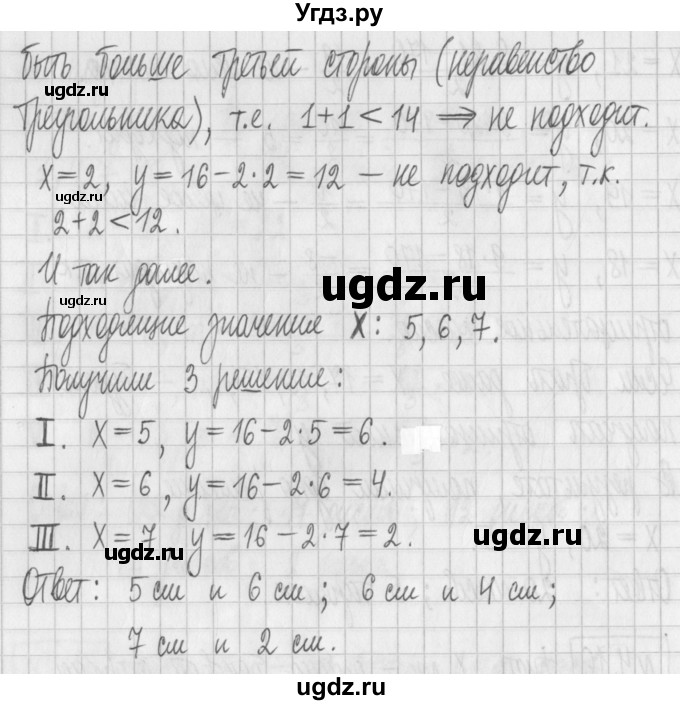 Угдз.ру
быть больше третьей стороны (неравенство
треугольника), т.е. 1+1<14 ⟹ не подходит.
x=2, y=16-2·2=12 — не подходит, т.к.
2+2<12.
И так далее.
Подходящие значение x: 5, 6, 7.
Получили 3 решение:
I. x=5, y=16-2·5=6.
II. x=6, y=16-2·6=4.
III. x=7, y=16-2·7=2.
Ответ: 5 см и 6 см; 6 см и 4 см;
7 см и 2 см.
ugdz.ru
ugdz.ru
ugdz.ru
ugdz.ru
ugdz.ru
ugdz.ru
ugdz.ru
ugdz.ru